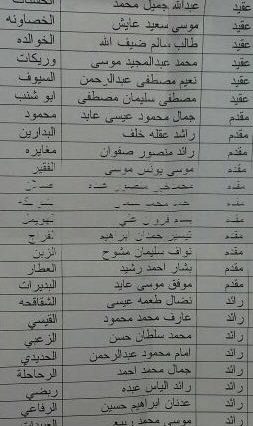 عقيد عبدالله جميل محمد
عقيد موسى سعيد عايش الخصاونه
عقيد طالب سالم ضيف الله الخوالده
عقيد محمد عبدالمجيد موسى وريكات
عقيد نعيم مصطفى عبدالرحمن السيوف
عقيد مصطفى سليمان مصطفى ابو شنب
مقدم جمال محمود عيسى عايد محمود
مقدم راشد عقله خلف البدارين
مقدم رائد منصور صفوان مغايره
مقدم موسى يونس موسى الفقير
مقدم منصور
مقدم محمد
مقدم بسام فاروق علي
مقدم تيسير حمدان ابراهيم
مقدم نواف سليمان مشوح الزبن
مقدم بشار احمد رشيد العطار
مقدم موفق موسى عايد البديرات
رائد نضال طعمه عيسى الشقاقحه
رائد عارف محمد محمود القيسي
رائد محمد سلطان حسن الزعبي
رائد امام محمود عبدالرحمن الحديدي
رائد جمال محمد احمد الرحاحلة
رائد رائد الياس عبده ربضي
رائد عدنان ابراهيم حسين الرفاعي
رائد موسى محمد ربيع